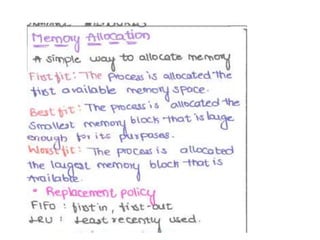 Memory Allocation
A simple way to allocate memory
First fit: The Process is allocated the
first available memory space.
Best fit: The process is allocated the
smallest memory block that is large
enough for its purposes.
Worst fit: The process is allocated
the largest memory block that is
Available.
• Replacement policy
FIFO : first in, first-out
LRU : Least recently used.